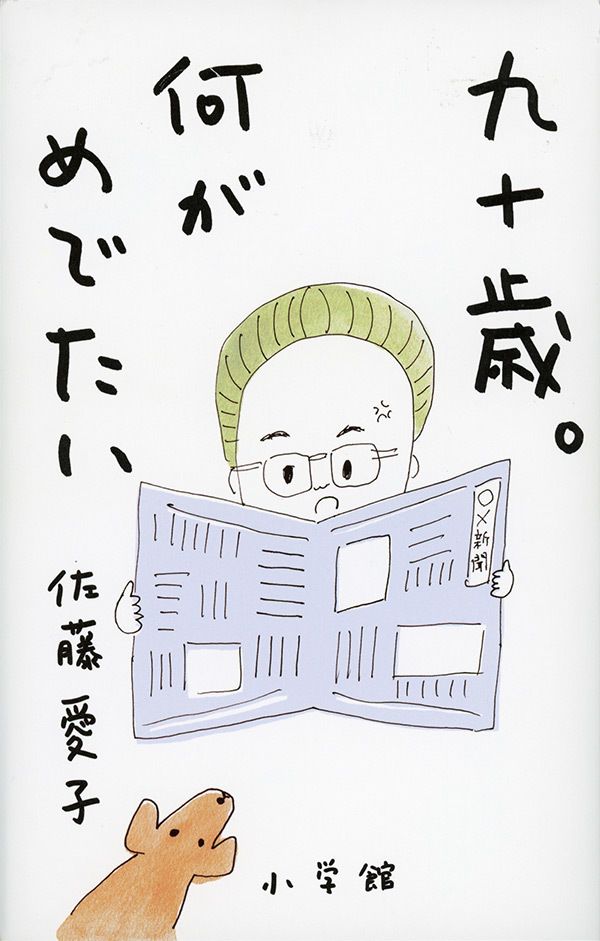 九十歳。
何が
めでたい
佐藤愛子
〇×新聞
小学館